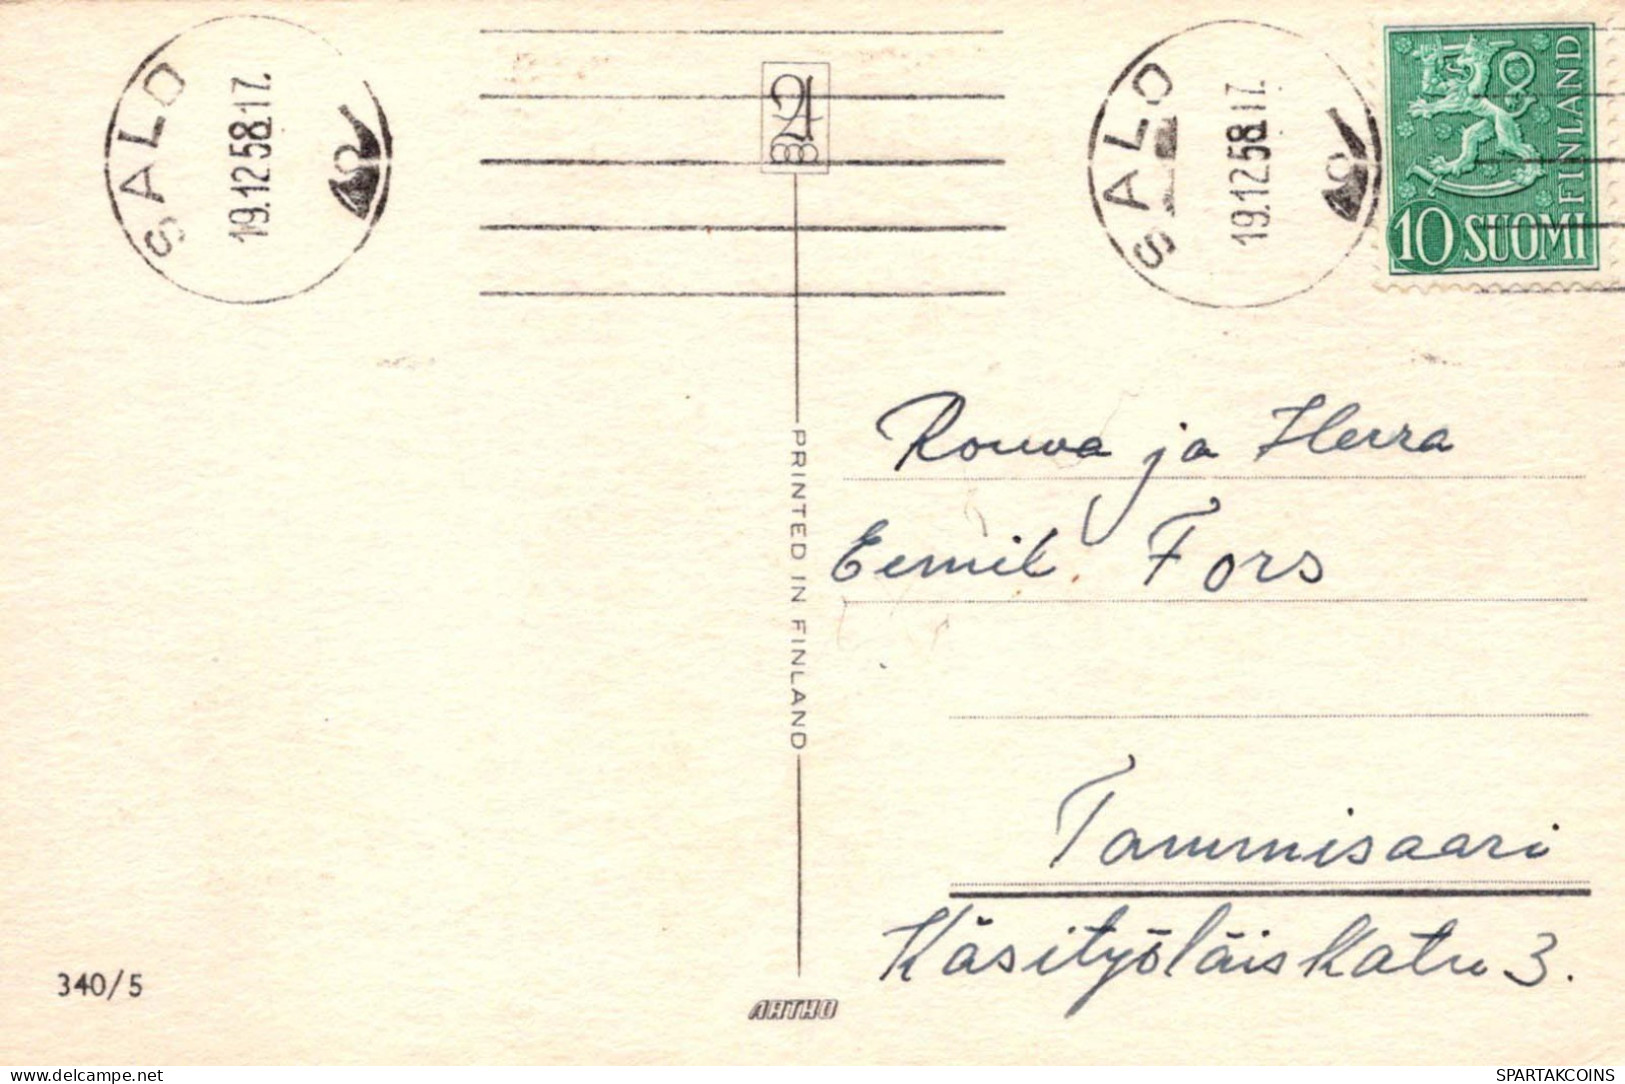 SALO
19.12.58.17.
SALO
19.12.58.17.
FINLAND
10 SUOMI
Rouva ja Herra
Eemil Fors
Tammisaari
Käsityöläiskatu 3.
PRINTED IN FINLAND
340/5
ARTHO
www.delcampe.net
SPARTAKCOINS